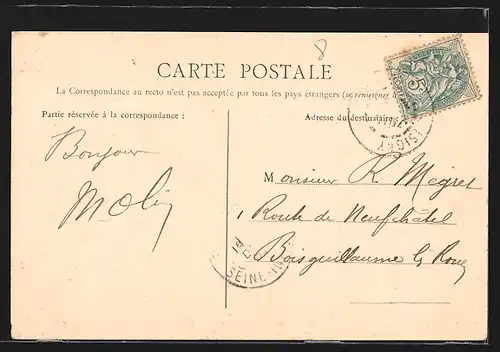 8
CARTE POSTALE
La Correspondance au recto n'est pas acceptée par tous les pays étrangers (se renseigner
Partie réservée à la correspondance :
Adresse du destinataire
5c
ISIGNY
Bonjour
Monsieur R. Mégret
1 Route de Neufchâtel
Boisguillaume
SEINE-IN